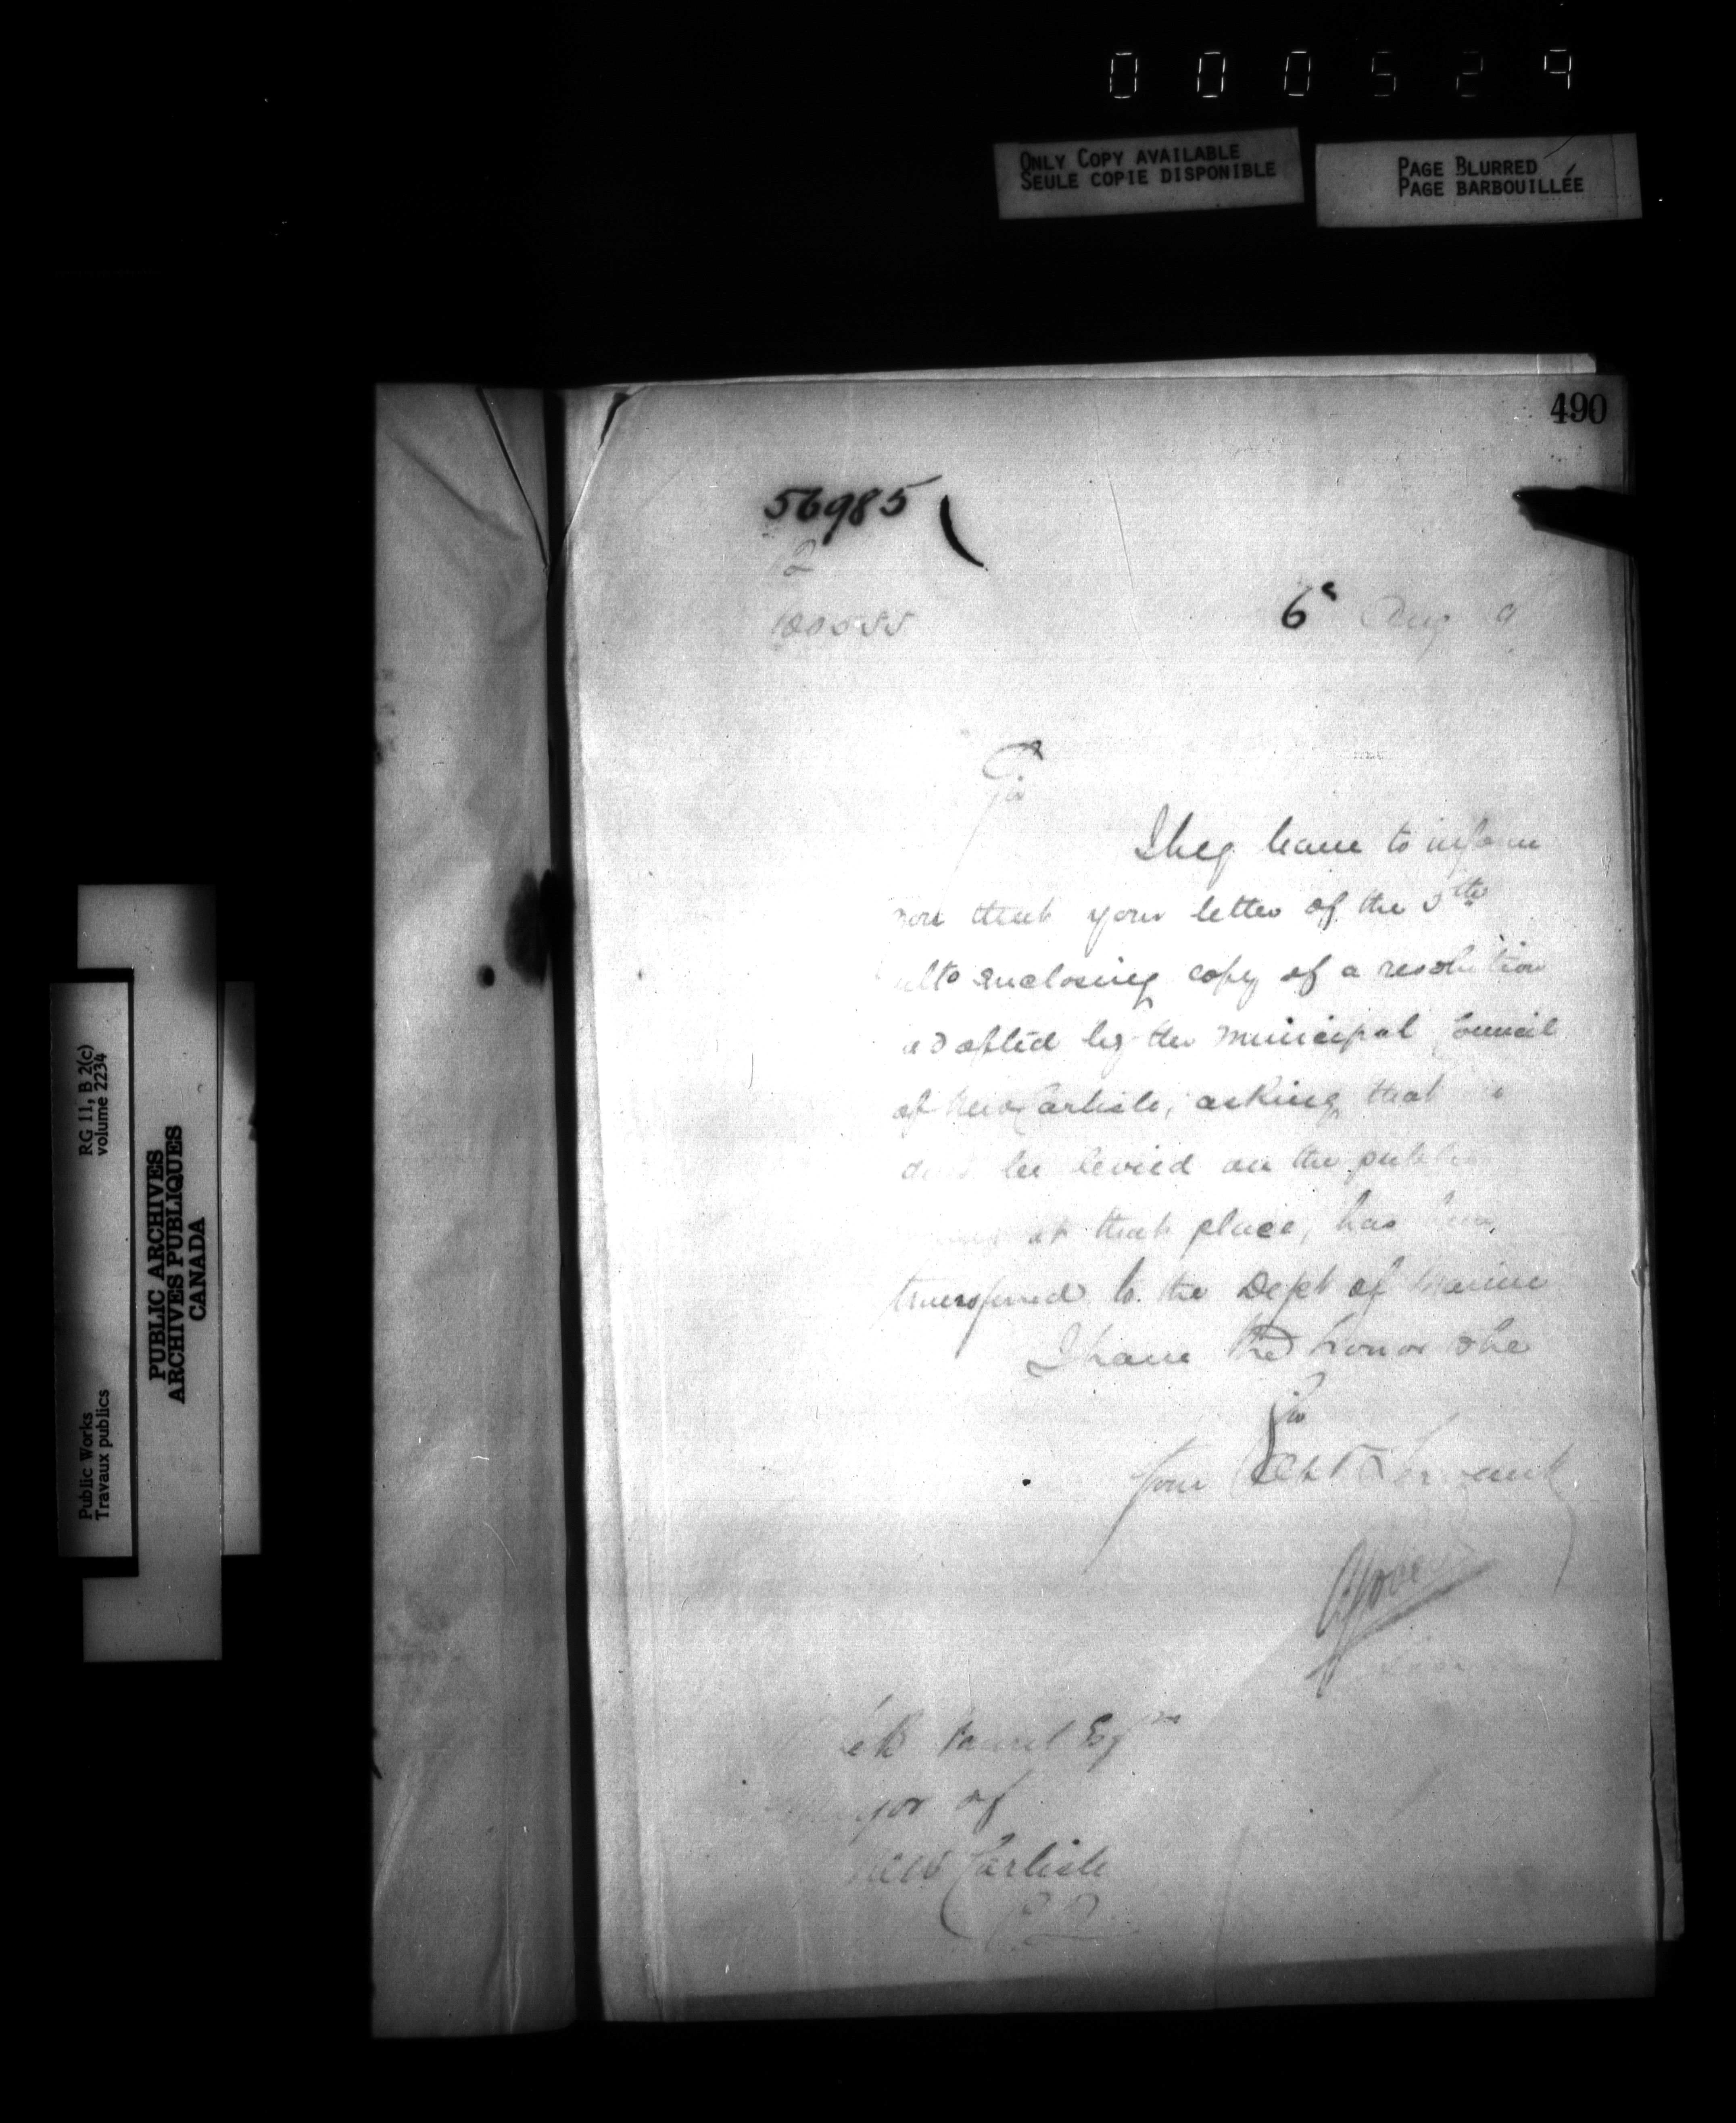 000529
ONLY COPY AVAILABLE
SEULE COPIE DISPONIBLE
PAGE BLURRED
PAGE BARBOUILLÉE
490
56985
6 Aug 9
Sir
I beg leave to inform
you that your letter of the 5th
ulto enclosing copy of a resolution
adopted by the Municipal Council
of New Carlisle, asking that
be levied on the public
at that place, has been
transferred to the Dept of Marine
I have the honor to be
Sir
Your Obt Servant
Esqre
Mayor of
New Carlisle
P.Q.
RG 11, B 2(c)
volume 2234
Public Works
Travaux publics
PUBLIC ARCHIVES
ARCHIVES PUBLIQUES
CANADA